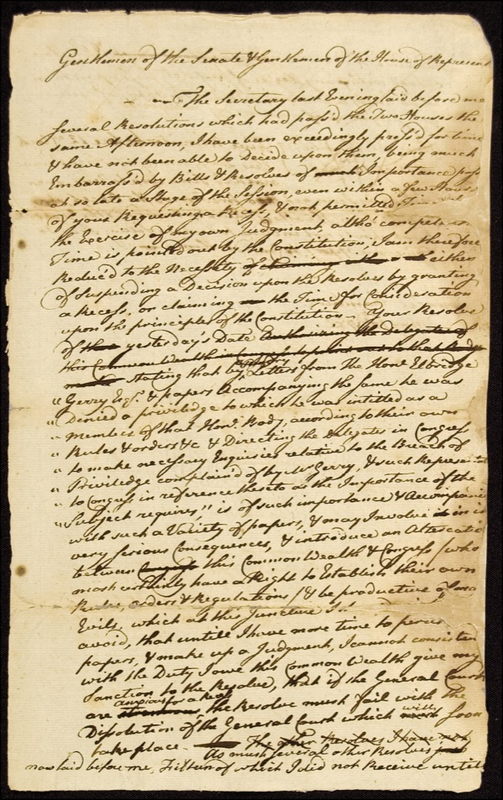 Gentlemen of the Senate & Gentlemen of the House of Represent
The Secretary last Evening laid before me
several Resolutions which had pass'd the Two Houses the
same Afternoon, I have been exceedingly press'd for time
& have not been able to decide upon them, being much
Embarrass'd by Bills & Resolves of much Importance pass
at so late a Stage of the Session, even within a few Hours
of your Requesting a Recess, & not permitted Time
the Exercise of my own Judgment, altho' competent
Time is pointed out by the Constitution, I am therefore
Reduc'd to the Necessity of either
of Suspending a Decision upon the Resolves by granting
a Recess, or claiming the Time for Consideration
upon the principles of the Constitution - Your Resolve
of yesterday's Date Authorizing the Delegates of
this Common Wealth in Congress
stating that by Letters from the Honl. Elbridge
" Gerry Esqr. & papers accompanying the same he was
" Denied a priviledge to which he was intitled as a
" Member of that Honl. Body, according to their own
" Rules & orders &c & Directing the Delegates in Congress
" to make necessary Enquiries relative to the Breach of
" Priviledge complain'd of by Mr Gerry, & such Represent
" to Congress in reference thereto as the Importance of the
" Subject requires," is of such importance & Accompanied
with such a Variety of papers, & may Involve in
very serious Consequences, & introduce an Altercatio
between Congress this Common Wealth & Congress (who
most certainly have a Right to Establish their own
Rules, orders & Regulations) & be productive of
Evils, which at this Juncture I
avoid, that untill I have more time to peruse
papers, & make up a Judgment, I cannot consisten
with the Duty I owe this Common Wealth give my
Sanction to the Resolve, that if the General Court
are anxious for a the Resolve must fail with the
Dissolution of the General Court which will soon
take place. The other Resolves I have
As must several other Resolves
now laid before me, Fifteen of which I did not Receive untill